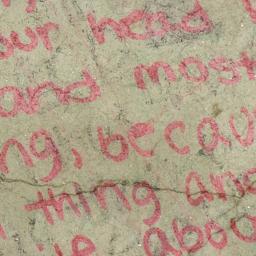 our head
and most
ng, becau
thing and
abou